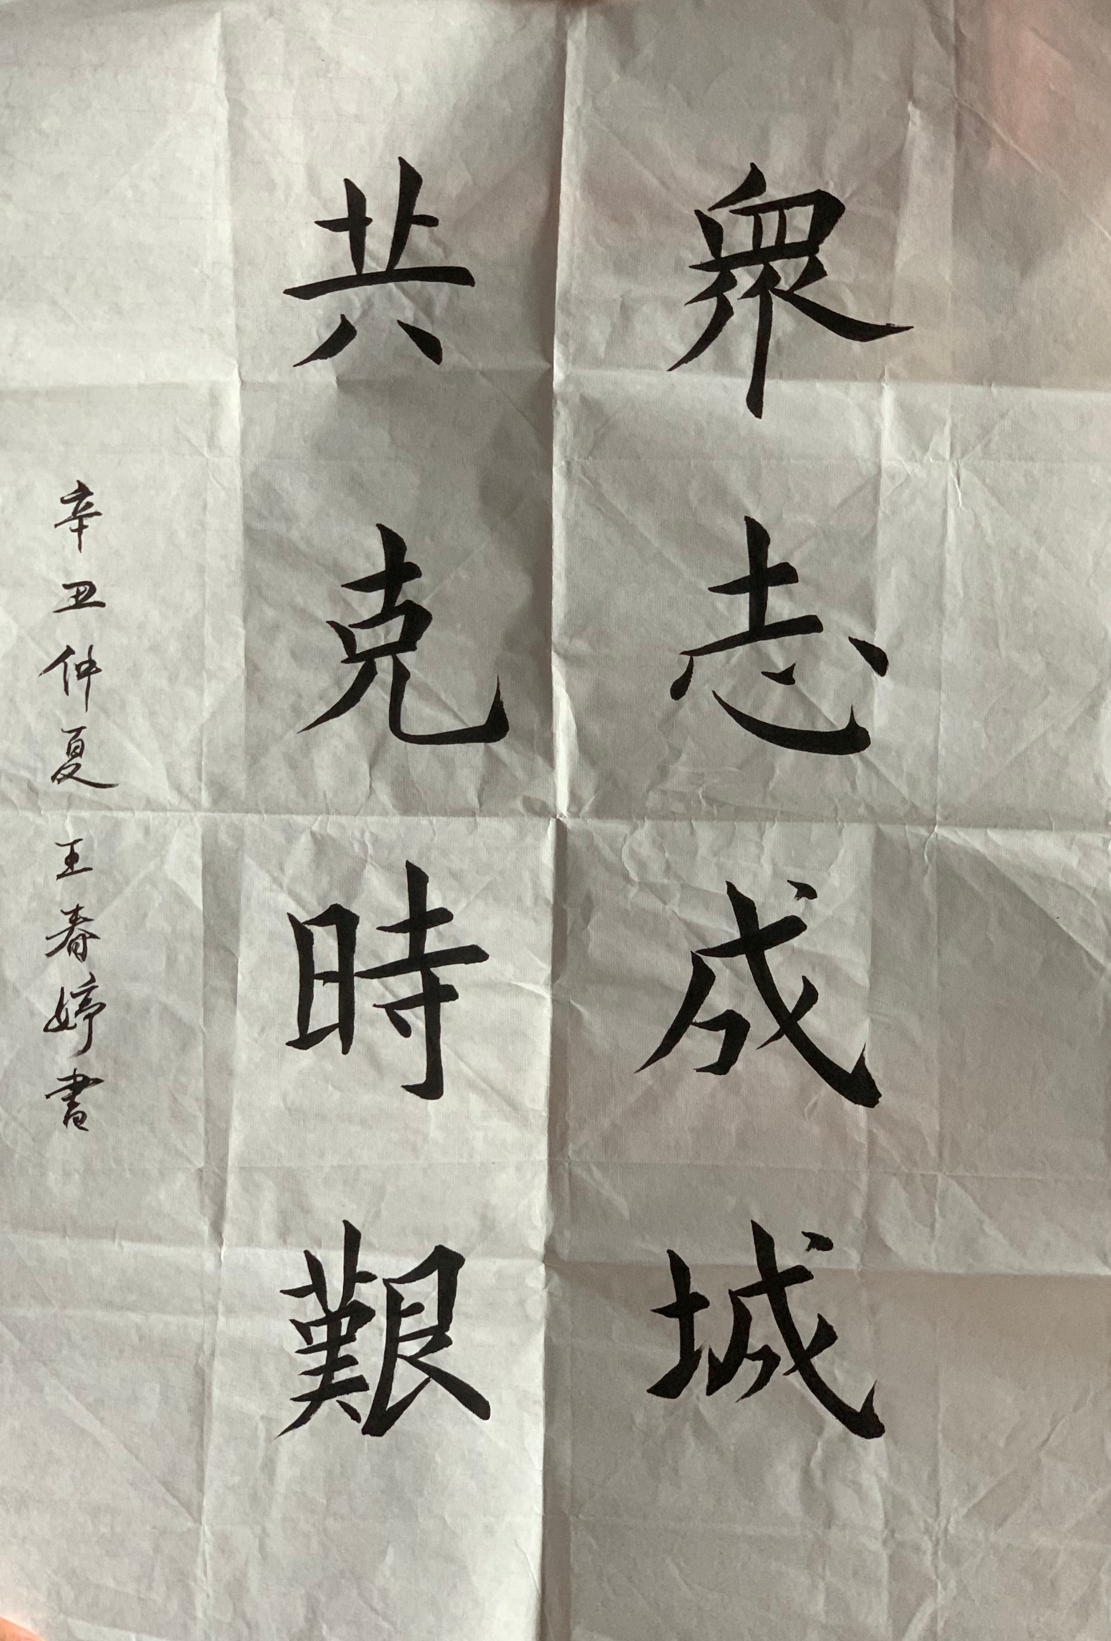 眾志成城
共克時艱
辛丑仲夏 王春婷書